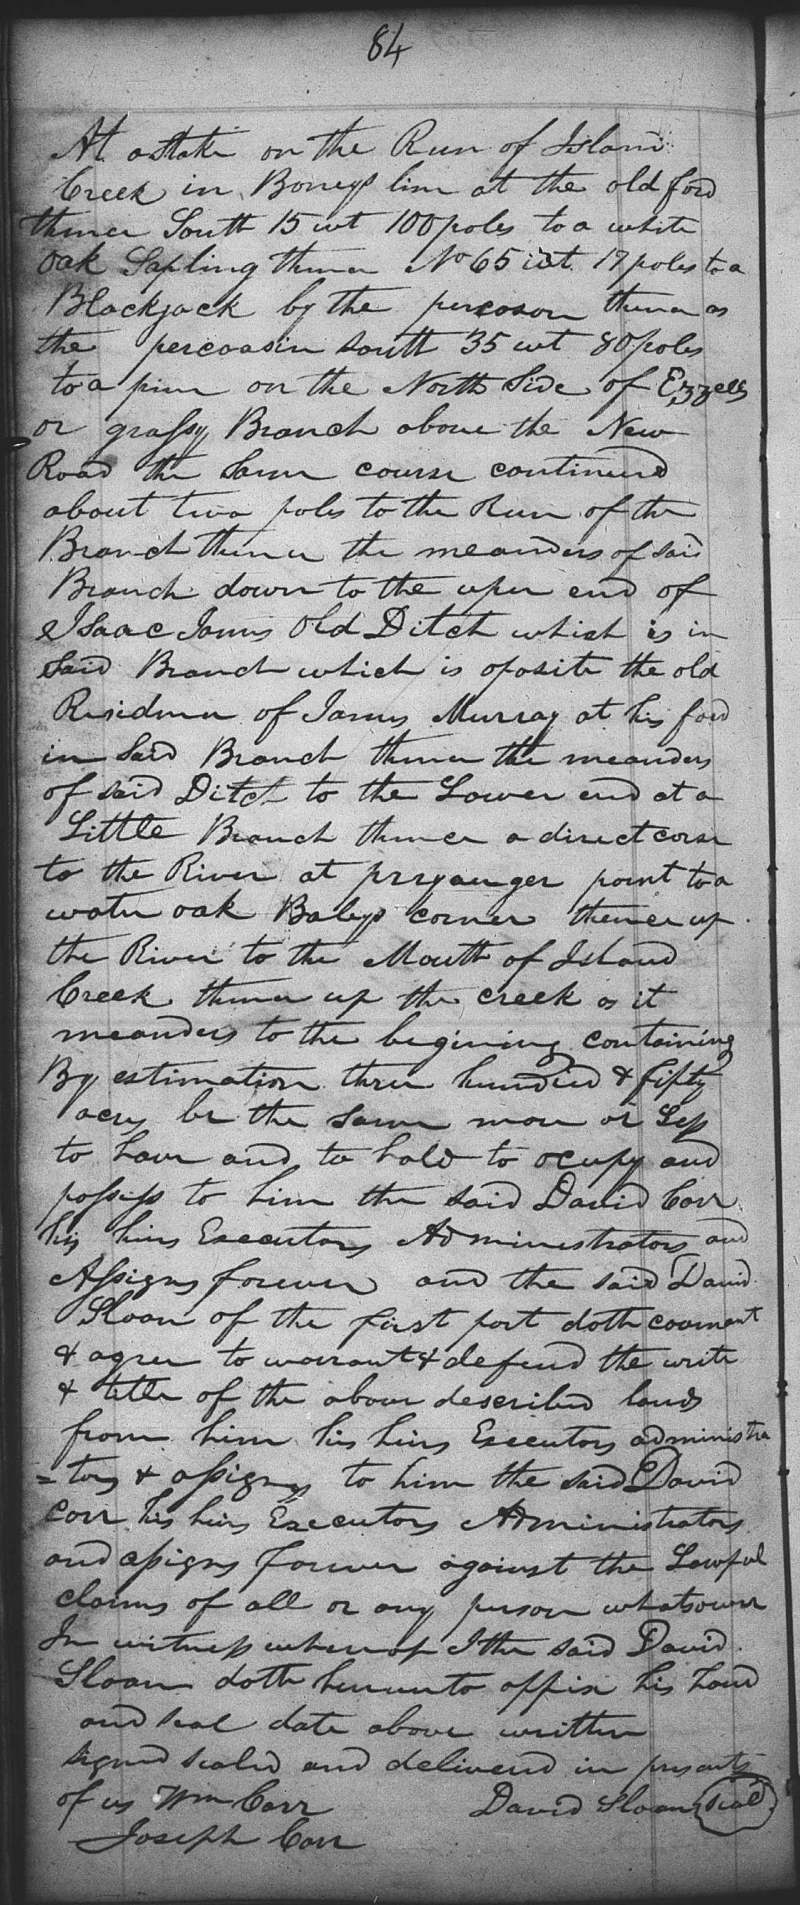 84
At a Stake on the Run of Island
Creek in Boneys line at the old ford
thence South 15 wt 100 poles to a white
Oak Sapling thence No 65 wt. 17 poles to a
Blackjack by the percoson thence as
the percoasin south 35 wt 80 poles
to a pine on the North Side of Ezzells
or grassy Branch above the New
Road the same course continued
about two poles to the Run of the
Branch thence the meanders of said
Branch down to the uper end of
Isaac James Old Ditch which is in
said Branch which is oposite the old
Residence of James Murray at his ford
in said Branch thence the meanders
of said Ditch to the Lower end at a
Little Branch thence a direct corse
to the River at point to a
water oak corner thence up
the River to the Mouth of Island
Creek thence up the creek as it
meanders to the begining containing
By estimation three hundred & fifty
acres be the same more or Less
to have and to hold to ocupy and
possess to him the said David Carr
his heirs Executors Administrators and
Assigns forever and the said David
Sloan of the first part doth covenant
& agree to warrant & defend the write
& title of the above described lands
from him his heirs Executors administra
=tors & assigns to him the said David
Carr his heirs Executors Administrators
and assigns forever against the Lawful
claims of all or any person whatsoever
In witness whereof I the said David
Sloan doth hereunto affix his hand
and seal date above written
signed sealed and delivered in presents
of us Wm Carr David Sloan seal
Joseph Carr